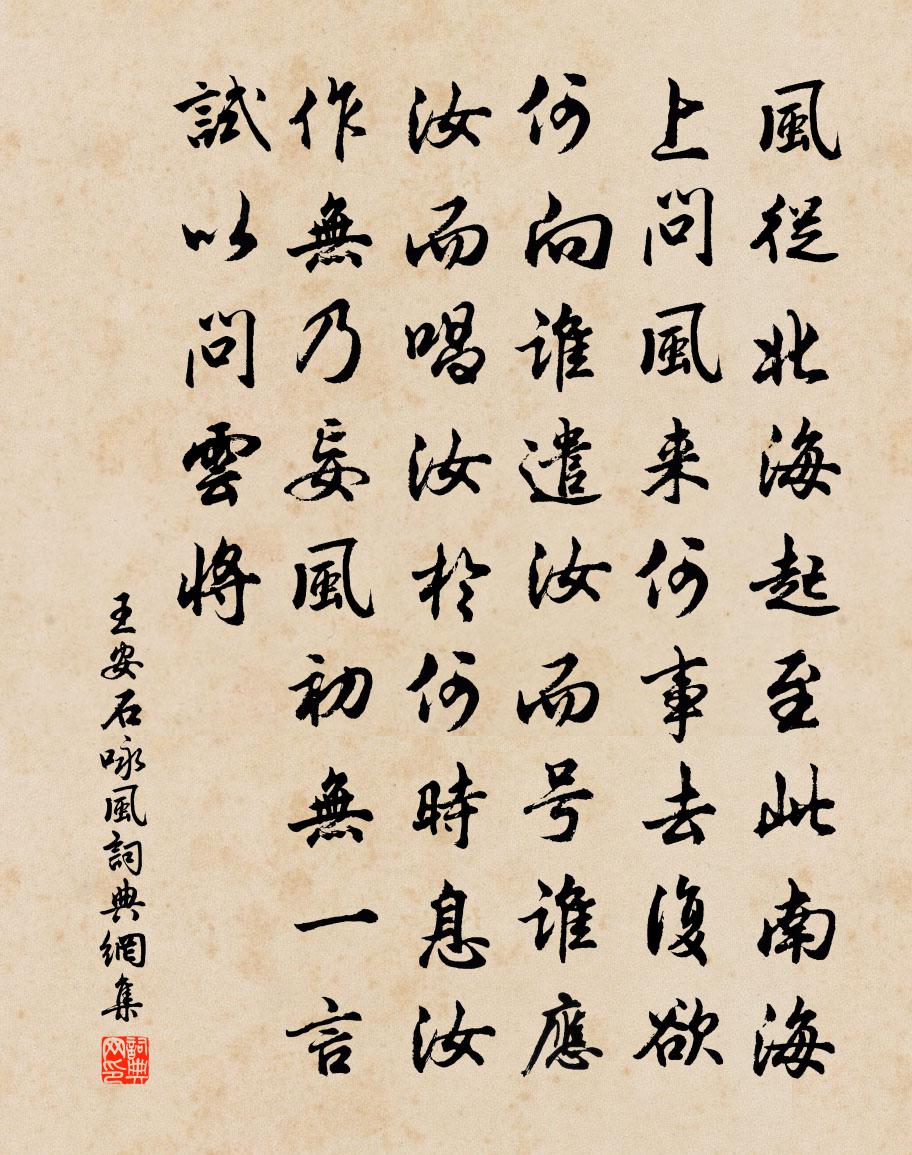 風從北海起至此南海
上問風来何事去復欲
何向誰遣汝而号誰應
汝而唱汝於何時息汝
作無乃妄風初無一言
試以問雲將
王安石咏風詞典網集
詞典
网印